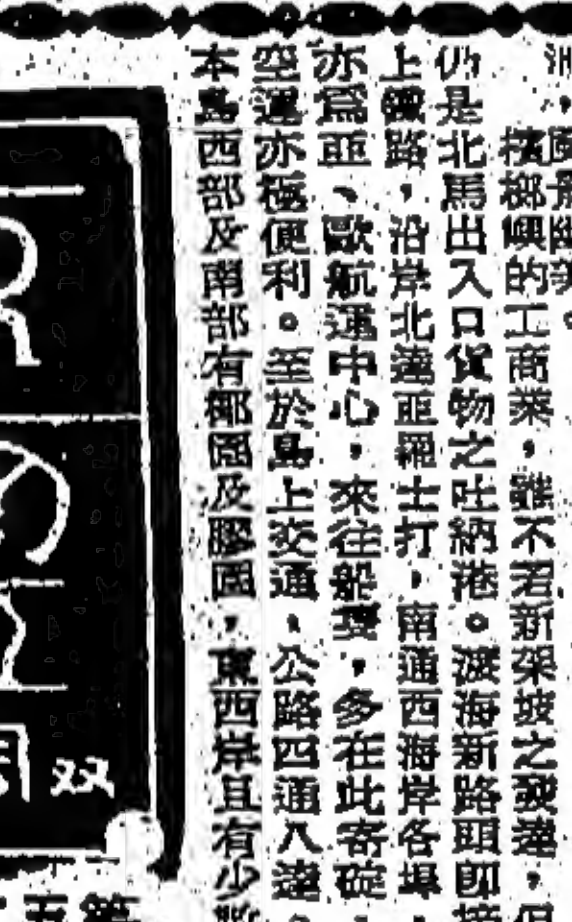 洲，風景幽美。
檳榔嶼的工商業，雖不若新架坡之發達，但
仍是北馬出入口貨物之吐納港。渡海新路頭即接
上鐵路，沿岸北達亞羅士打，南通西海岸各埠，
亦為亞、歐航運中心，來往船隻，多在此寄碇，
空運亦極便利。至於島上交通，公路四通八達。
本島西部及南部有椰園及膠園，東西岸且有少數
双
五